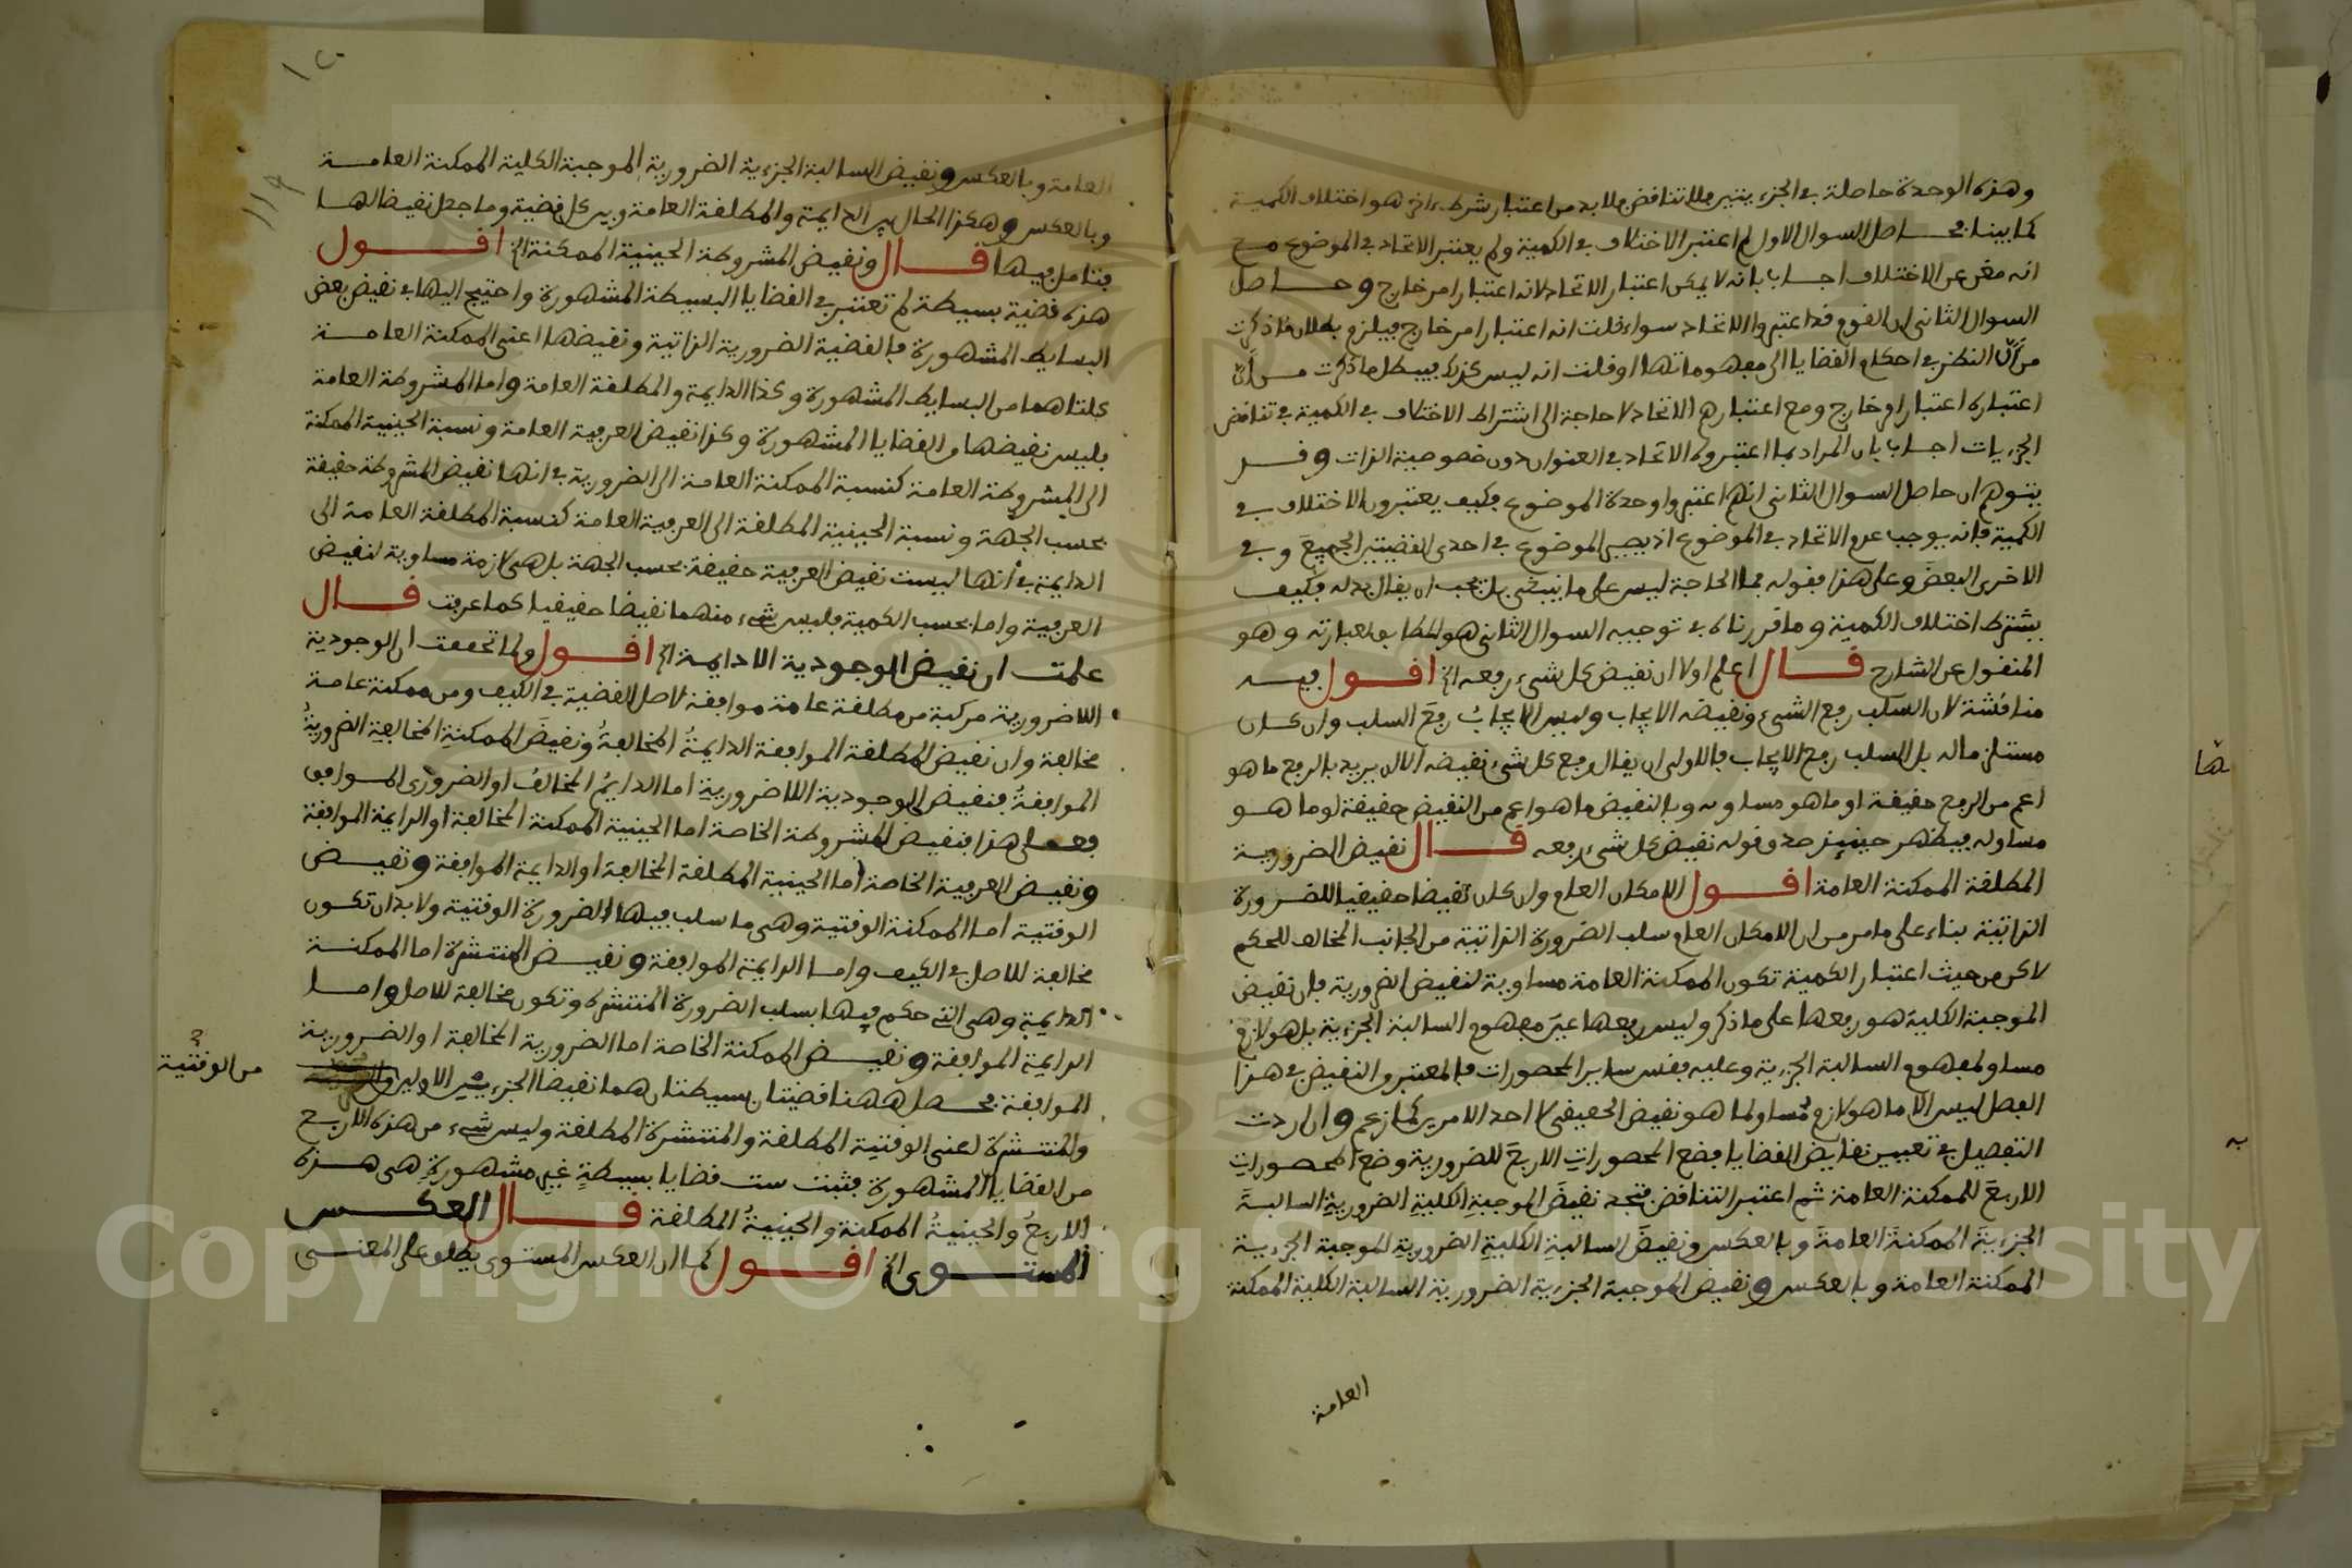 وهذه الوحدة حاصلة في الجزءيتين فلا تناقض فلا بد من اعتبار شرط ءاخر هو اختلاف الكمية
كما بينا فحاصل السوال الاول لم اعتبر الاختلاف في الكمية ولم يعتبر الاتحاد في الموضوع مع
انه مغن عن الاختلاف اجاب بانه لا يمكن اعتبار الاتحاد لانه اعتبار امر خارج وحاصل
السوال الثاني ان القوم قد اعتبروا الاتحاد سواء قلت انه اعتبار امر خارج فيلزم بطلان ما ذكرت
من أنّ النظر في احكام القضايا الى مفهوماتها او قلت انه ليس كذلك فيبطل ما ذكرت من أنّ
اعتباره اعتبار امر خارج ومع اعتبارهم الاتحاد لا حاجة الى اشتراط الاختلاف في الكمية في تناقض
الجزءيات اجاب بان المراد بما اعتبروه الاتحاد في العنوان دون خصوصية الذات وقد
يتوهم ان حاصل السوال الثاني انهم اعتبروا وحدة الموضوع فكيف يعتبرون الاختلاف في
الكمية فإنه يوجب عدم الاتحاد في الموضوع اذ يصير الموضوع في احدى القضيتين الجميعَ وفي
الاخرى البعضَ وعلى هذا فقوله فما الحاجة ليس على ما ينبغي بل يجب ان يقال بدله فكيف
يشترط اختلاف الكمية وما قررناه في توجيه السوال الثاني هو المطابق لعبارته وهو
المنقول عن الشارح قال اعلم اولا ان نقيض كل شيء رفعه الخ اقول فيه
مناقشة لان السلب رفع الشيء ونقيضه الايجاب وليس الايجابُ رفعَ السلب وان كان
مستلزما له بل السلب رفع الايجاب فالاولى ان يقال رفع كل شيء نقيضه الا ان يريد بالرفع ما هو
اعم من الرفع حقيقة او ما هو مساو له وبالنقيض ما هو اعم من النقيض حقيقة او ما هو
مساو له فيظهر حينيذ صدق قوله نقيض كل شيء رفعه قال نقيض الضرورية
المطلقة الممكنة العامة اقول الامكان العام وان كان نقيضا حقيقيا للضرورة
الذاتية بناء على ما مر من ان الامكان العام سلب الضرورة الذاتية من الجانب المخالف للحكم
لاكن من حيث اعتبار الكمية تكون الممكنة العامة مساوية لنقيض الضرورية فان نقيض
الموجبة الكلية هو رفعها على ما ذكر وليس رفعها عينَ مفهوم السالبة الجزءية بل هو لازم
مساو لمفهوم السالبة الجزءية وعليه فقس ساير المحصورات فالمعتبر والنقيض في هذا
الفصل ليس الّا ما هو لازم مُساو لما هو نقيض الحقيقي لا احد الامرين كما زعم وان اردت
التفصيل في تعيين نقايض القضايا فضع المحصوراتِ الاربعَ للضرورية وضع المحصوراتِ
الاربعَ للممكنة العامة ثم اعتبر التناقض فتجد نقيضَ الموجبةِ الكليةِ الضروريةِ السالبةَ
الجزءيةَ الممكنةَ العامةَ وبالعكس ونقيضَ السالبةِ الكليةِ الضروريةِ الموجبة الجزءية
الممكنة العامة وبالعكس ونقيض الموجبة الجزءية الضرورية السالبة الكلية الممكنة
العامة
العامة وبالعكس ونقيض السالبة الجزءية الضرورية الموجبة الكلية الممكنة العامة
وبالعكس وهكذا الحال بين الدايمة والمطلقة العامة وبين كل قضية وما جعل نقيضا لها
فتامل فيها قال ونقيض المشروطة الحينية الممكنة الخ اقول
هذه قضية بسيطة لم تعتبر في القضايا البسيطة المشهورة واحتيج اليها في نقيض بعض
البسايط المشهورة فالقضية الضرورية الذاتية ونقيضها اعني الممكنة العامة
كلتاهما من البسايط المشهورة وكذا الدايمة والمطلقة العامة واما المشروطة العامة
فليس نقيضها من القضايا المشهورة وكذا نقيض العرفية العامة ونسبة الحينية الممكنة
الى المشروطة العامة كنسبة الممكنة العامة الى الضرورية في انها نقيض المشروطة حقيقة
بحسب الجهة ونسبة الحينية المطلقة الى العرفية العامة كنسبة المطلقة العامة الى
الدايمة في أنها ليست نقيض العرفية حقيقة بحسب الجهة بل هي لازمة مساوية لنقيض
العرفية واما بحسب الكمية فليس شيء منهما نقيضا حقيقيا كما عرفت قال
علمت ان نقيض الوجودية اللاداىمة الخ اقول ولما تحققت ان الوجودية
اللاضرورية مركبة من مطلقة عامة موافقة لاصل القضية في الكيف ومن ممكنة عامة
مخالفة وان نقيض المطلقة الموافقة الدايمةُ المخالفةُ ونقيضَ الممكنةِ المخالفةِ الضروريةُ
الموافقةُ فنقيض الوجودية اللاضرورية اما الدايمُ المخالفُ او الضروري الموافق
فعلى هذا فنقيض المشروطة الخاصة اما الحينية الممكنة المخالفة او الدايمة الموافقة
ونقيض العرفية الخاصة اما الحينية المطلقة المخالفة او الدايمة الموافقة ونقيض
الوقتية اما الممكنة الوقتية وهي ما سلب فيها الضرورة الوقتية ولا بد ان تكون
مخالفة للاصل في الكيف واما الدايمة الموافقة ونقيض المنتشرة اما الممكنة
الدايمة وهي التي حكم فيها بسلب الضرورة المنتشرة وتكون مخالفة للاصل واما
الدايمة الموافقة ونقيض الممكنة الخاصة اما الضرورية المخالفة او الضرورية
الموافقة فحصل ههنا قضيتان بسيطتان هما نقيضا الجزءين الاولين
من الوقتية
والمنتشرة اعني الوقتية المطلقة والمنتشرة المطلقة وليس شيء من هذه الاربع
من القضايا المشهورة فثبت ست قضايا بسيطةٍ غيرِ مشهورةٍ هي هذه
الاربعُ والحينيةُ الممكنة والحينيةُ المطلقة قال العكس
المستوى الخ اقول كما ان العكس المستوى يطلق على المعنى
١١٩
Copyright © King Saud University